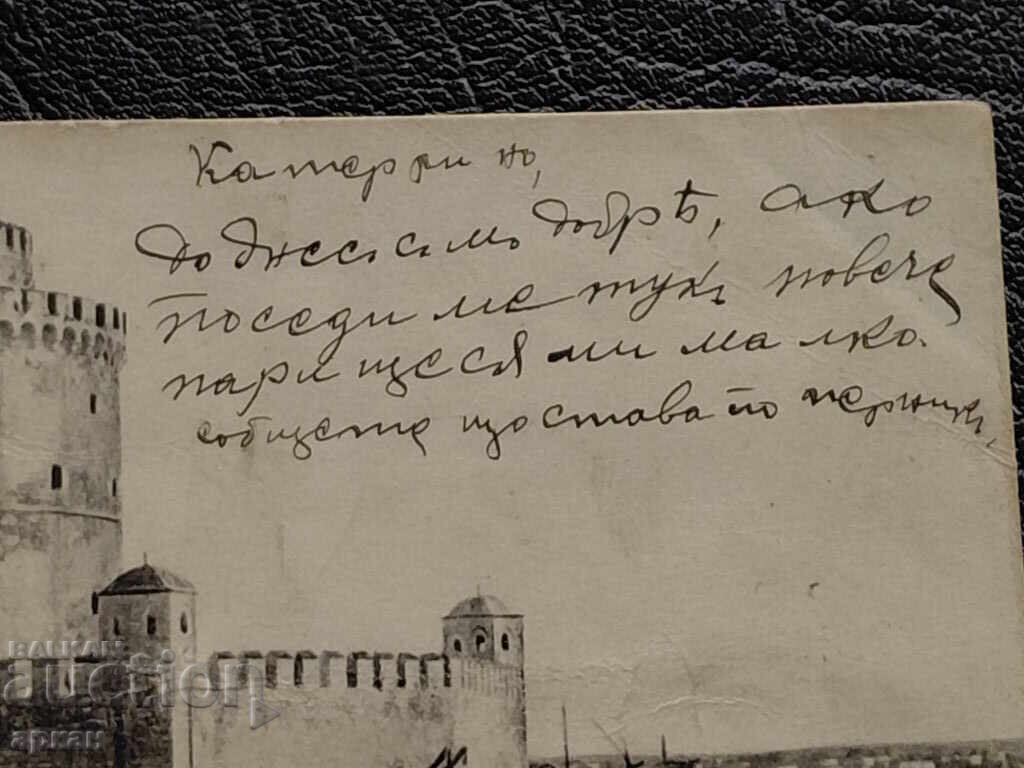 Катеррино,
до днесъ съмъ добрѣ, ако
поседиме тукъ повече
пари ще ся ми малко.
съобщете що става по
BALKAN
auction
аркан